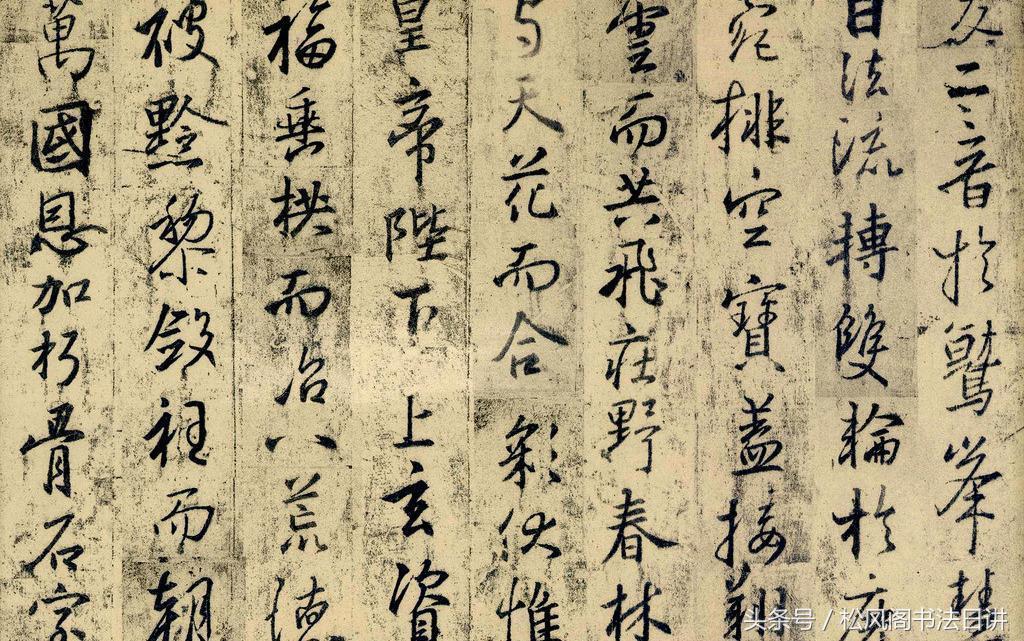 交二音於鷲峯慧
日法流轉雙輪於鹿
菀排空寶蓋接翔
雲而共飛莊野春林
與天花而合彩伏惟
皇帝陛下上玄資
福垂拱而治八荒德
被黔黎斂衽而朝
萬國恩加朽骨石室
头条号 / 松风阁书法日讲